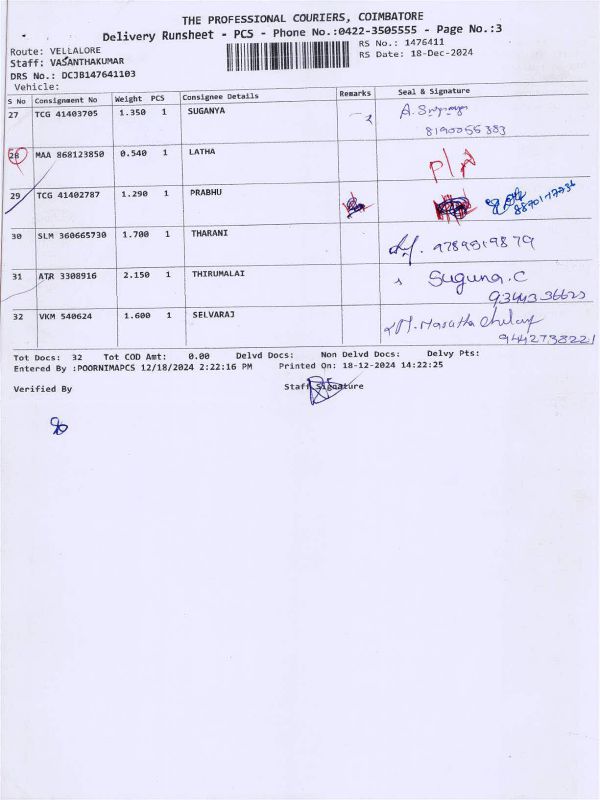 THE PROFESSIONAL COURIERS, COIMBATORE
Delivery Runsheet - PCS - Phone No.:0422-3505555 - Page No.:3
Route: VELLALORE
RS No.: 1476411
Staff: VASANTHAKUMAR
RS Date: 18-Dec-2024
DRS No.: DCJB147641103
Vehicle:
S No Consignment No Weight PCS Consignee Details Remarks Seal & Signature
27 TCG 41403705 1.350 1 SUGANYA
8190055383
28 MAA 868123850 0.540 1 LATHA
29 TCG 41402787 1.290 1 PRABHU
30 SLM 360665730 1.700 1 THARANI 9789919879
31 ATR 3308916 2.150 1 THIRUMALAI Suguna.C
32 VKM 540624 1.600 1 SELVARAJ
9442738221
Tot Docs: 32 Tot COD Amt: 0.00 Delvd Docs: Non Delvd Docs: Delvy Pts:
Entered By :POORNIMAPCS 12/18/2024 2:22:16 PM Printed On: 18-12-2024 14:22:25
Verified By Staff Signature